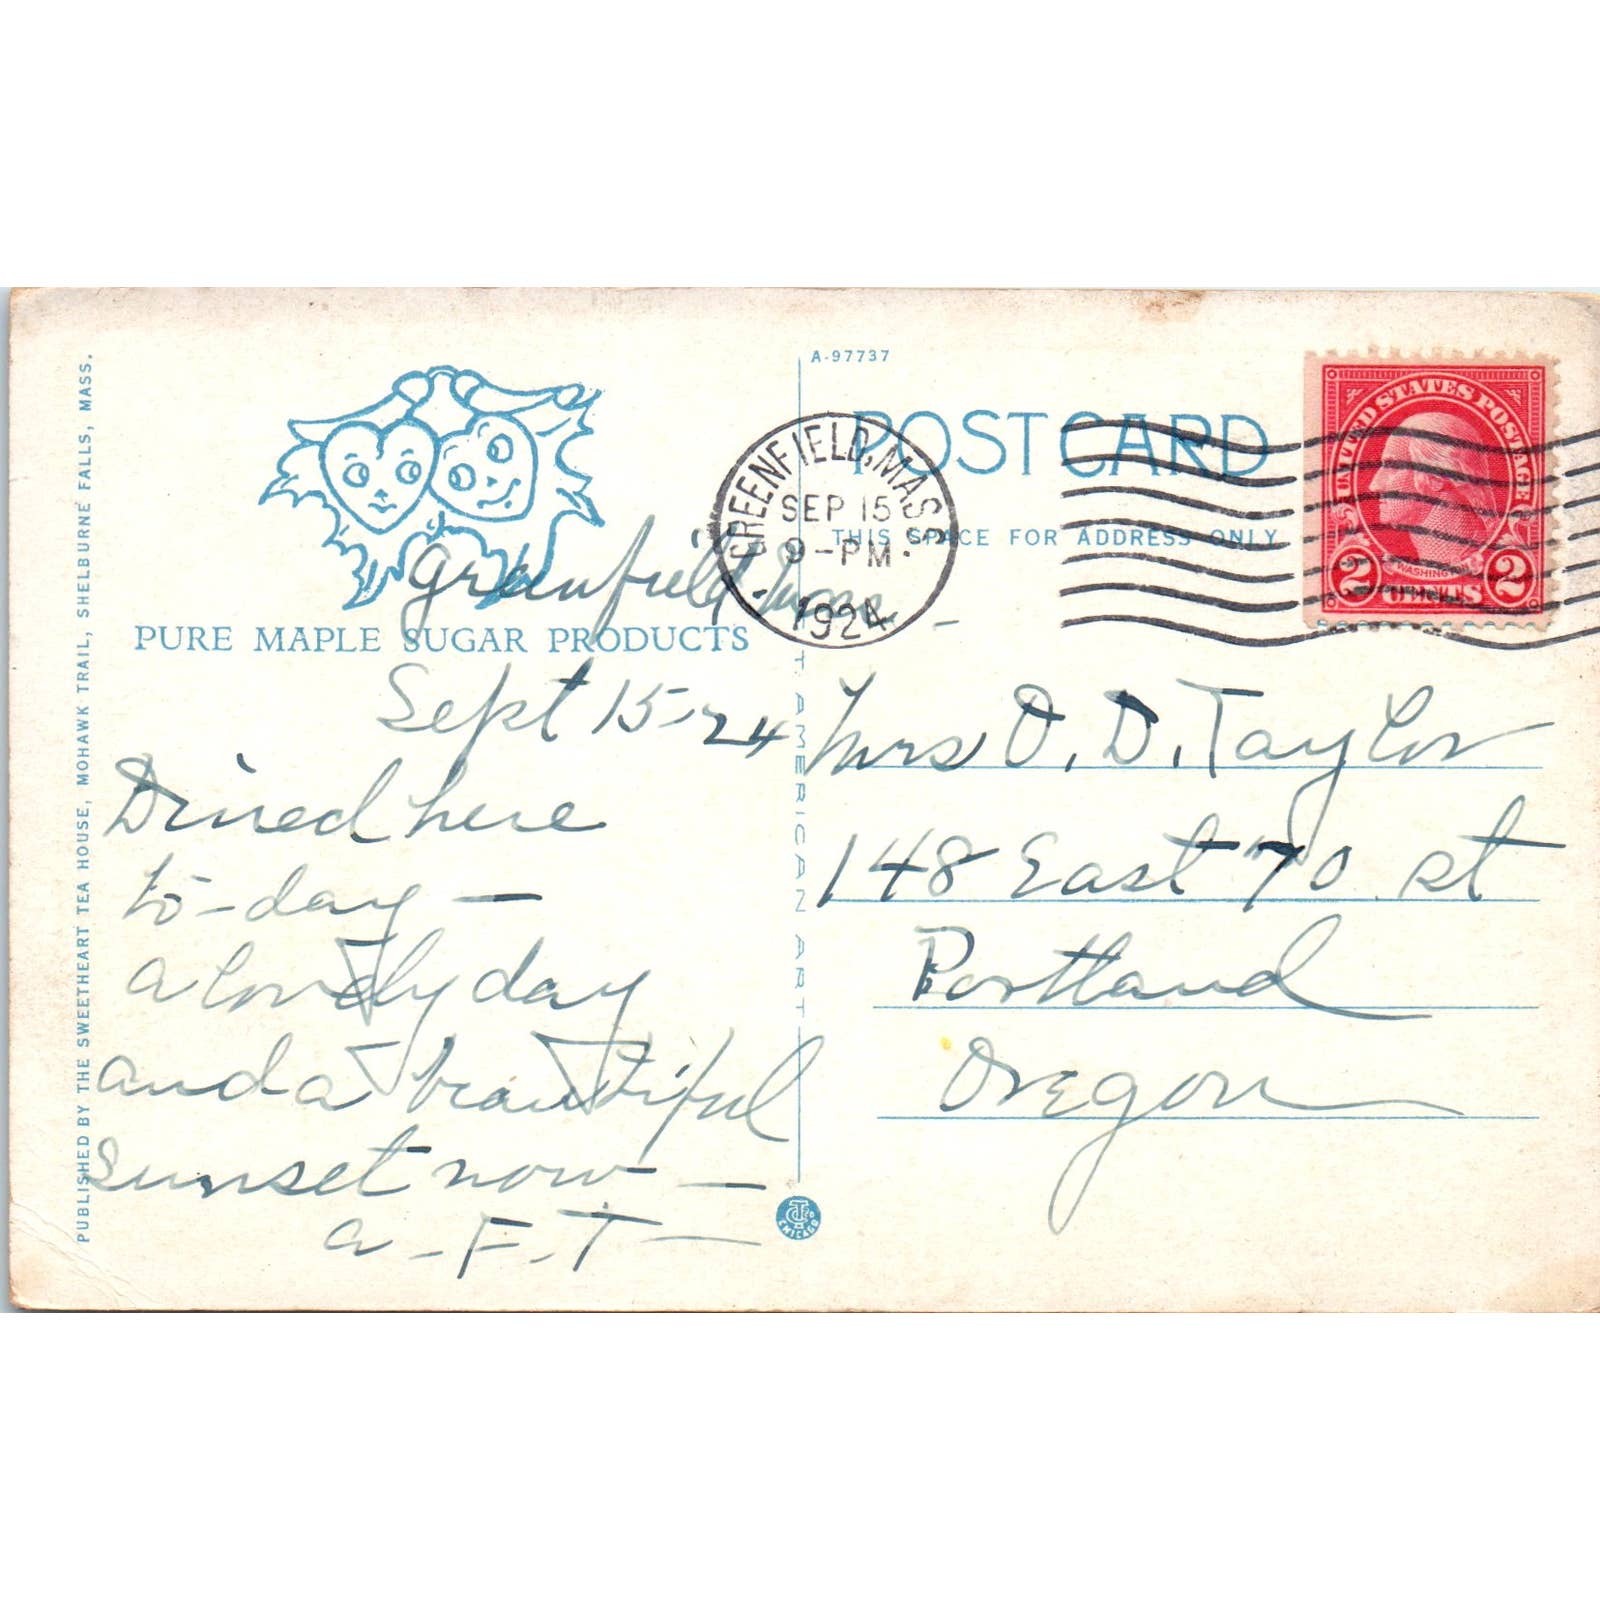 PUBLISHED BY THE SWEETHEART TEA HOUSE, MOHAWK TRAIL, SHELBURNE FALLS, MASS.
PURE MAPLE SUGAR PRODUCTS
Greenfield Mass.
Sept 15-24
Dined here
to-day —
a lovely day
and a beautiful
sunset now —
a-F.T—
A-97737
POST CARD
THIS SPACE FOR ADDRESS ONLY
GREENFIELD, MASS.
SEP 15
9-PM
1924
UNITED STATES POSTAGE
WASHINGTON
2 CENTS 2
T AMERICAN ART
CHICAGO
Mrs O. D. Taylor
148 East 70 st
Portland
Oregon